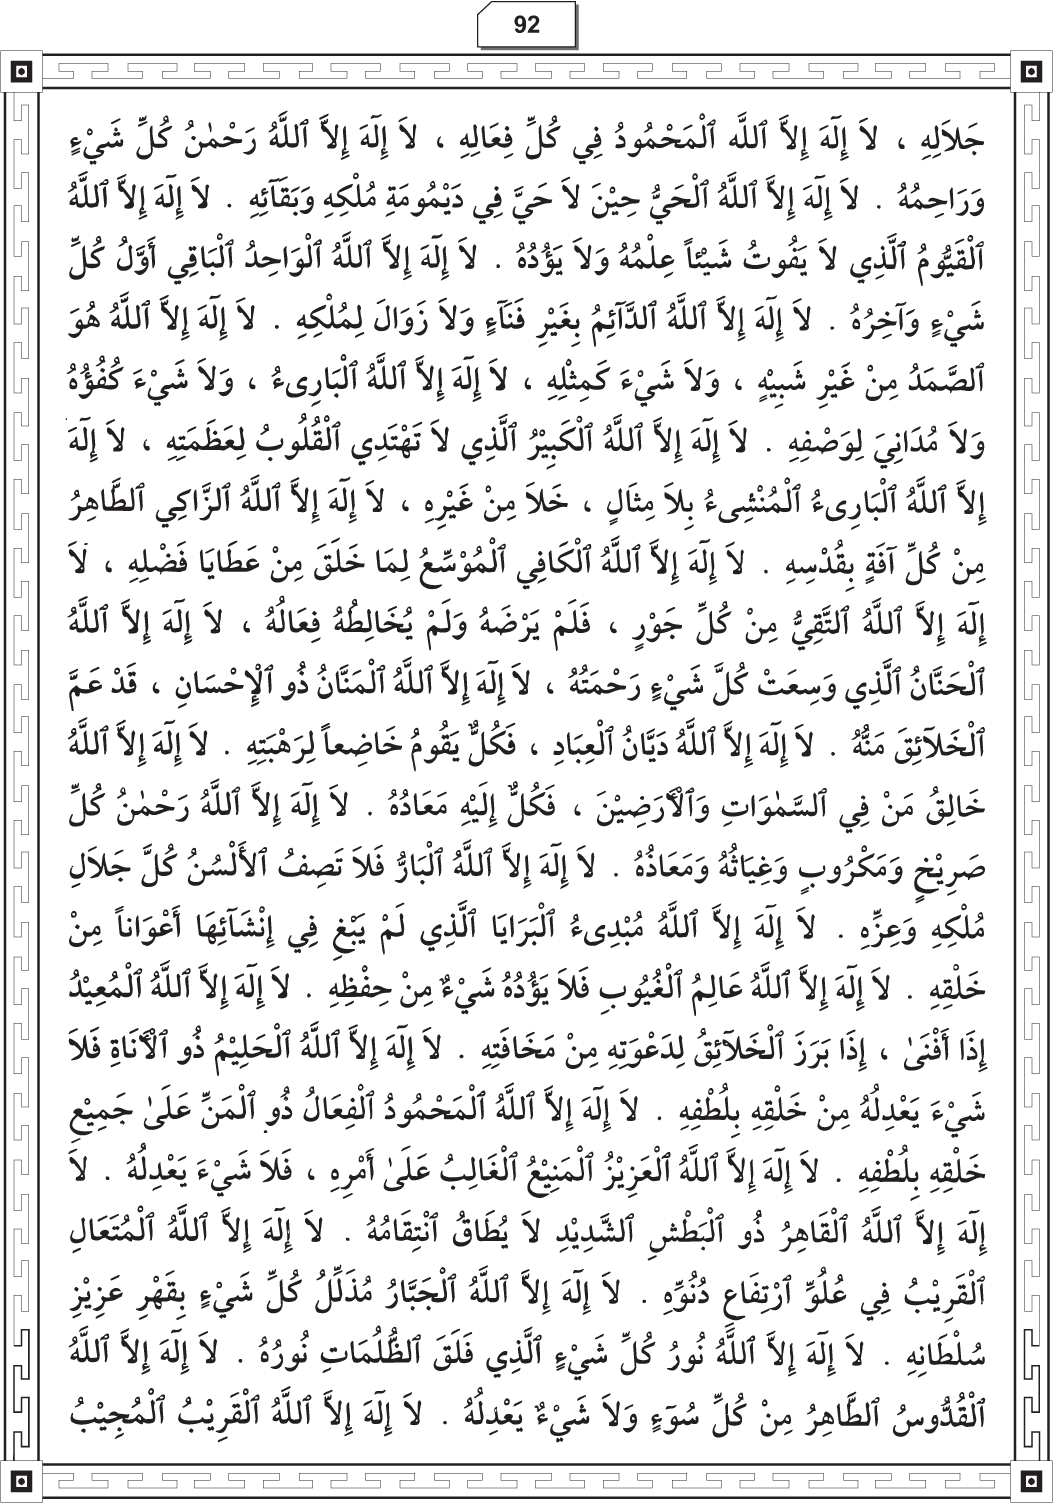 92
جَلاَلِهِ ، لاَ إِلَهَ إِلاَّ ٱللَّه ٱلْمَحْمُودُ فِي كُلِّ فِعَالِهِ ، لاَ إِلَهَ إِلاَّ ٱللَّهُ رَحْمٰنُ كُلِّ شَيْءٍ
وَرَاحِمُهُ . لاَ إِلَهَ إِلاَّ ٱللَّهُ ٱلْحَيُّ حِيْنَ لاَ حَيَّ فِي دَيْمُومَةِ مُلْكِهِ وَبَقَآئِهِ . لاَ إِلَهَ إِلاَّ ٱللَّهُ
ٱلْقَيُّومُ ٱلَّذِي لاَ يَفُوتُ شَيْئاً عِلْمُهُ وَلاَ يَؤُدُهُ . لاَ إِلَهَ إِلاَّ ٱللَّهُ ٱلْوَاحِدُ ٱلْبَاقِي أَوَّلُ كُلِّ
شَيْءٍ وَآخِرُهُ . لاَ إِلَهَ إِلاَّ ٱللَّهُ ٱلدَّآئِمُ بِغَيْرِ فَنَآءٍ وَلاَ زَوَالَ لِمُلْكِهِ . لاَ إِلَهَ إِلاَّ ٱللَّهُ هُوَ
ٱلصَّمَدُ مِنْ غَيْرِ شَبِيْهٍ ، وَلاَ شَيْءَ كَمِثْلِهِ ، لاَ إِلَهَ إِلاَّ ٱللَّهُ ٱلْبَارِىءُ ، وَلاَ شَيْءَ كُفُؤُهُ
وَلاَ مُدَانِيَ لِوَصْفِهِ . لاَ إِلَهَ إِلاَّ ٱللَّهُ ٱلْكَبِيْرُ ٱلَّذِي لاَ تَهْتَدِي ٱلْقُلُوبُ لِعَظَمَتِهِ ، لاَ إِلَهَ
إِلاَّ ٱللَّهُ ٱلْبَارِىءُ ٱلْمُنْشِىءُ بِلاَ مِثَالٍ ، خَلاَ مِنْ غَيْرِهِ ، لاَ إِلَهَ إِلاَّ ٱللَّهُ ٱلزَّاكِي ٱلطَّاهِرُ
مِنْ كُلِّ آفَةٍ بِقُدْسِهِ . لاَ إِلَهَ إِلاَّ ٱللَّهُ ٱلْكَافِي ٱلْمُوْسِّعُ لِمَا خَلَقَ مِنْ عَطَايَا فَضْلِهِ ، لاَ
إِلَهَ إِلاَّ ٱللَّهُ ٱلتَّقِيُّ مِنْ كُلِّ جَوْرٍ ، فَلَمْ يَرْضَهُ وَلَمْ يُخَالِطْهُ فِعَالُهُ ، لاَ إِلَهَ إِلاَّ ٱللَّهُ
ٱلْحَنَّانُ ٱلَّذِي وَسِعَتْ كُلَّ شَيْءٍ رَحْمَتُهُ ، لاَ إِلَهَ إِلاَّ ٱللَّهُ ٱلْمَنَّانُ ذُو ٱلْإِحْسَانِ ، قَدْ عَمَّ
ٱلْخَلآئِقَ مَنُّهُ . لاَ إِلَهَ إِلاَّ ٱللَّهُ دَيَّانُ ٱلْعِبَادِ ، فَكُلٌّ يَقُومُ خَاضِعاً لِرَهْبَتِهِ . لاَ إِلَهَ إِلاَّ ٱللَّهُ
خَالِقُ مَنْ فِي ٱلسَّمٰوَاتِ وَٱلْأَرَضِيْنَ ، فَكُلٌّ إِلَيْهِ مَعَادُهُ . لاَ إِلَهَ إِلاَّ ٱللَّهُ رَحْمٰنُ كُلِّ
صَرِيْخٍ وَمَكْرُوبٍ وَغِيَاثُهُ وَمَعَاذُهُ . لاَ إِلَهَ إِلاَّ ٱللَّهُ ٱلْبَارُّ فَلاَ تَصِفُ ٱلأَلْسُنُ كُلَّ جَلاَلِ
مُلْكِهِ وَعِزِّهِ . لاَ إِلَهَ إِلاَّ ٱللَّهُ مُبْدِىءُ ٱلْبَرَايَا ٱلَّذِي لَمْ يَبْغِ فِي إِنْشَآئِهَا أَعْوَاناً مِنْ
خَلْقِهِ . لاَ إِلَهَ إِلاَّ ٱللَّهُ عَالِمُ ٱلْغُيُوبِ فَلاَ يَؤُدُهُ شَيْءٌ مِنْ حِفْظِهِ . لاَ إِلَهَ إِلاَّ ٱللَّهُ ٱلْمُعِيْدُ
إِذَا أَفْنَىٰ ، إِذَا بَرَزَ ٱلْخَلآئِقُ لِدَعْوَتِهِ مِنْ مَخَافَتِهِ . لاَ إِلَهَ إِلاَّ ٱللَّهُ ٱلْحَلِيْمُ ذُو ٱلْأَنَاةِ فَلاَ
شَيْءَ يَعْدِلُهُ مِنْ خَلْقِهِ بِلُطْفِهِ . لاَ إِلَهَ إِلاَّ ٱللَّهُ ٱلْمَحْمُودُ ٱلْفِعَالُ ذُو ٱلْمَنِّ عَلَىٰ جَمِيْعِ
خَلْقِهِ بِلُطْفِهِ . لاَ إِلَهَ إِلاَّ ٱللَّهُ ٱلْعَزِيْزُ ٱلْمَنِيْعُ ٱلْغَالِبُ عَلَىٰ أَمْرِهِ ، فَلاَ شَيْءَ يَعْدِلُهُ . لاَ
إِلَهَ إِلاَّ ٱللَّهُ ٱلْقَاهِرُ ذُو ٱلْبَطْشِ ٱلشَّدِيْدِ لاَ يُطَاقُ ٱنْتِقَامُهُ . لاَ إِلَهَ إِلاَّ ٱللَّهُ ٱلْمُتَعَالِ
ٱلْقَرِيْبُ فِي عُلُوِّ ٱرْتِفَاعِ دُنُوِّهِ . لاَ إِلَهَ إِلاَّ ٱللَّهُ ٱلْجَبَّارُ مُذَلِّلُ كُلِّ شَيْءٍ بِقَهْرِ عَزِيْزِ
سُلْطَانِهِ . لاَ إِلَهَ إِلاَّ ٱللَّهُ نُورُ كُلِّ شَيْءٍ ٱلَّذِي فَلَقَ ٱلظُّلُمَاتِ نُورُهُ . لاَ إِلَهَ إِلاَّ ٱللَّهُ
ٱلْقُدُّوسُ ٱلطَّاهِرُ مِنْ كُلِّ سُوٓءٍ وَلاَ شَيْءٌ يَعْدِلُهُ . لاَ إِلَهَ إِلاَّ ٱللَّهُ ٱلْقَرِيْبُ ٱلْمُجِيْبُ